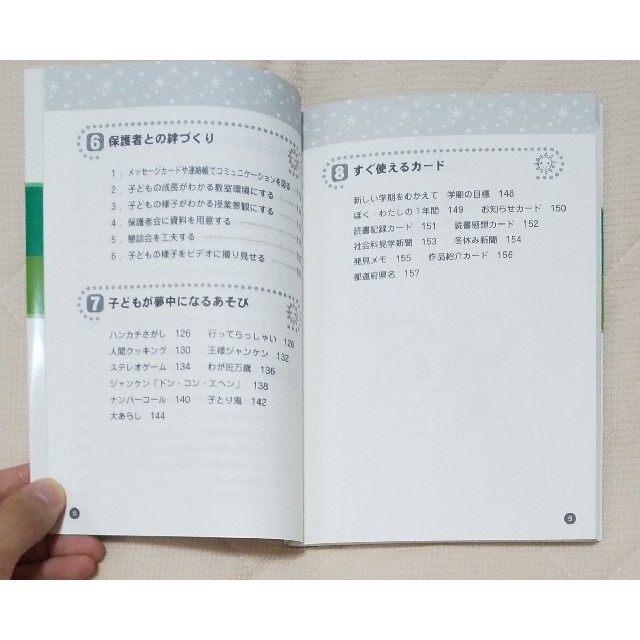 6 保護者との絆づくり
1．メッセージカードや連絡帳でコミュニケーションを図る
2．子どもの成長がわかる教室環境にする
3．子どもの様子がわかる授業参観にする
4．保護者会に資料を用意する
5．懇談会を工夫する
6．子どもの様子をビデオに撮り見せる
7 子どもが夢中になるあそび
ハンカチさがし 126 行ってらっしゃい 128
人間クッキング 130 王様ジャンケン 132
ステレオゲーム 134 わが班万歳 136
ジャンケン「ドン・コン・エヘン」 138
ナンバーコール 140 子とり鬼 142
大あらし 144
8
8 すぐ使えるカード
新しい学期をむかえて 学期の目標 148
ぼく・わたしの1年間 149 お知らせカード 150
読書記録カード 151 読書感想カード 152
社会科見学新聞 153 冬休み新聞 154
発見メモ 155 作品紹介カード 156
都道府県名 157
9